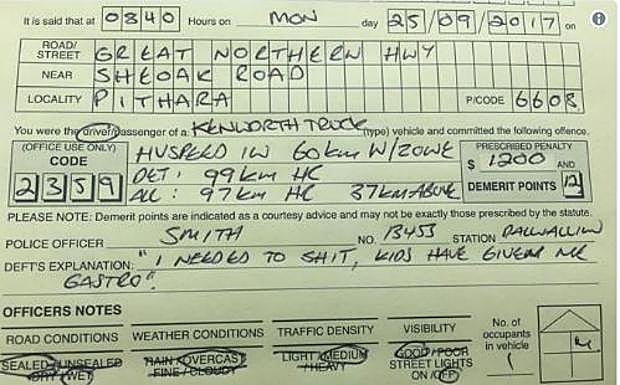 It is said that at 0840 Hours on MON day 25/09/2017 on
ROAD/ STREET GREAT NORTHERN HWY
NEAR SHEOAK ROAD
LOCALITY PITHARA P/CODE 6608
You were the driver/passenger of a KENWORTH TRUCK (type) vehicle and committed the following offence.
(OFFICE USE ONLY) HVSPEED IN 60km W/ZONE PRESCRIBED PENALTY
CODE $ 1200 AND
2359 DET: 99km HC DEMERIT POINTS 12
ALL: 97km HC 37KM ABOVE
PLEASE NOTE: Demerit points are indicated as a courtesy advice and may not be exactly those prescribed by the statute.
POLICE OFFICER SMITH NO. 13453 STATION DALWALLINU
DEFT'S EXPLANATION: "I NEEDED TO SHIT, KIDS HAVE GIVEN ME
GASTRO".
OFFICERS NOTES
ROAD CONDITIONS WEATHER CONDITIONS TRAFFIC DENSITY VISIBILITY No. of occupants in vehicle
SEALED/UNSEALED RAIN/OVERCAST LIGHT/MEDIUM GOOD/POOR 1
DRY/WET FINE/CLOUDY /HEAVY STREET LIGHTS
ON/OFF